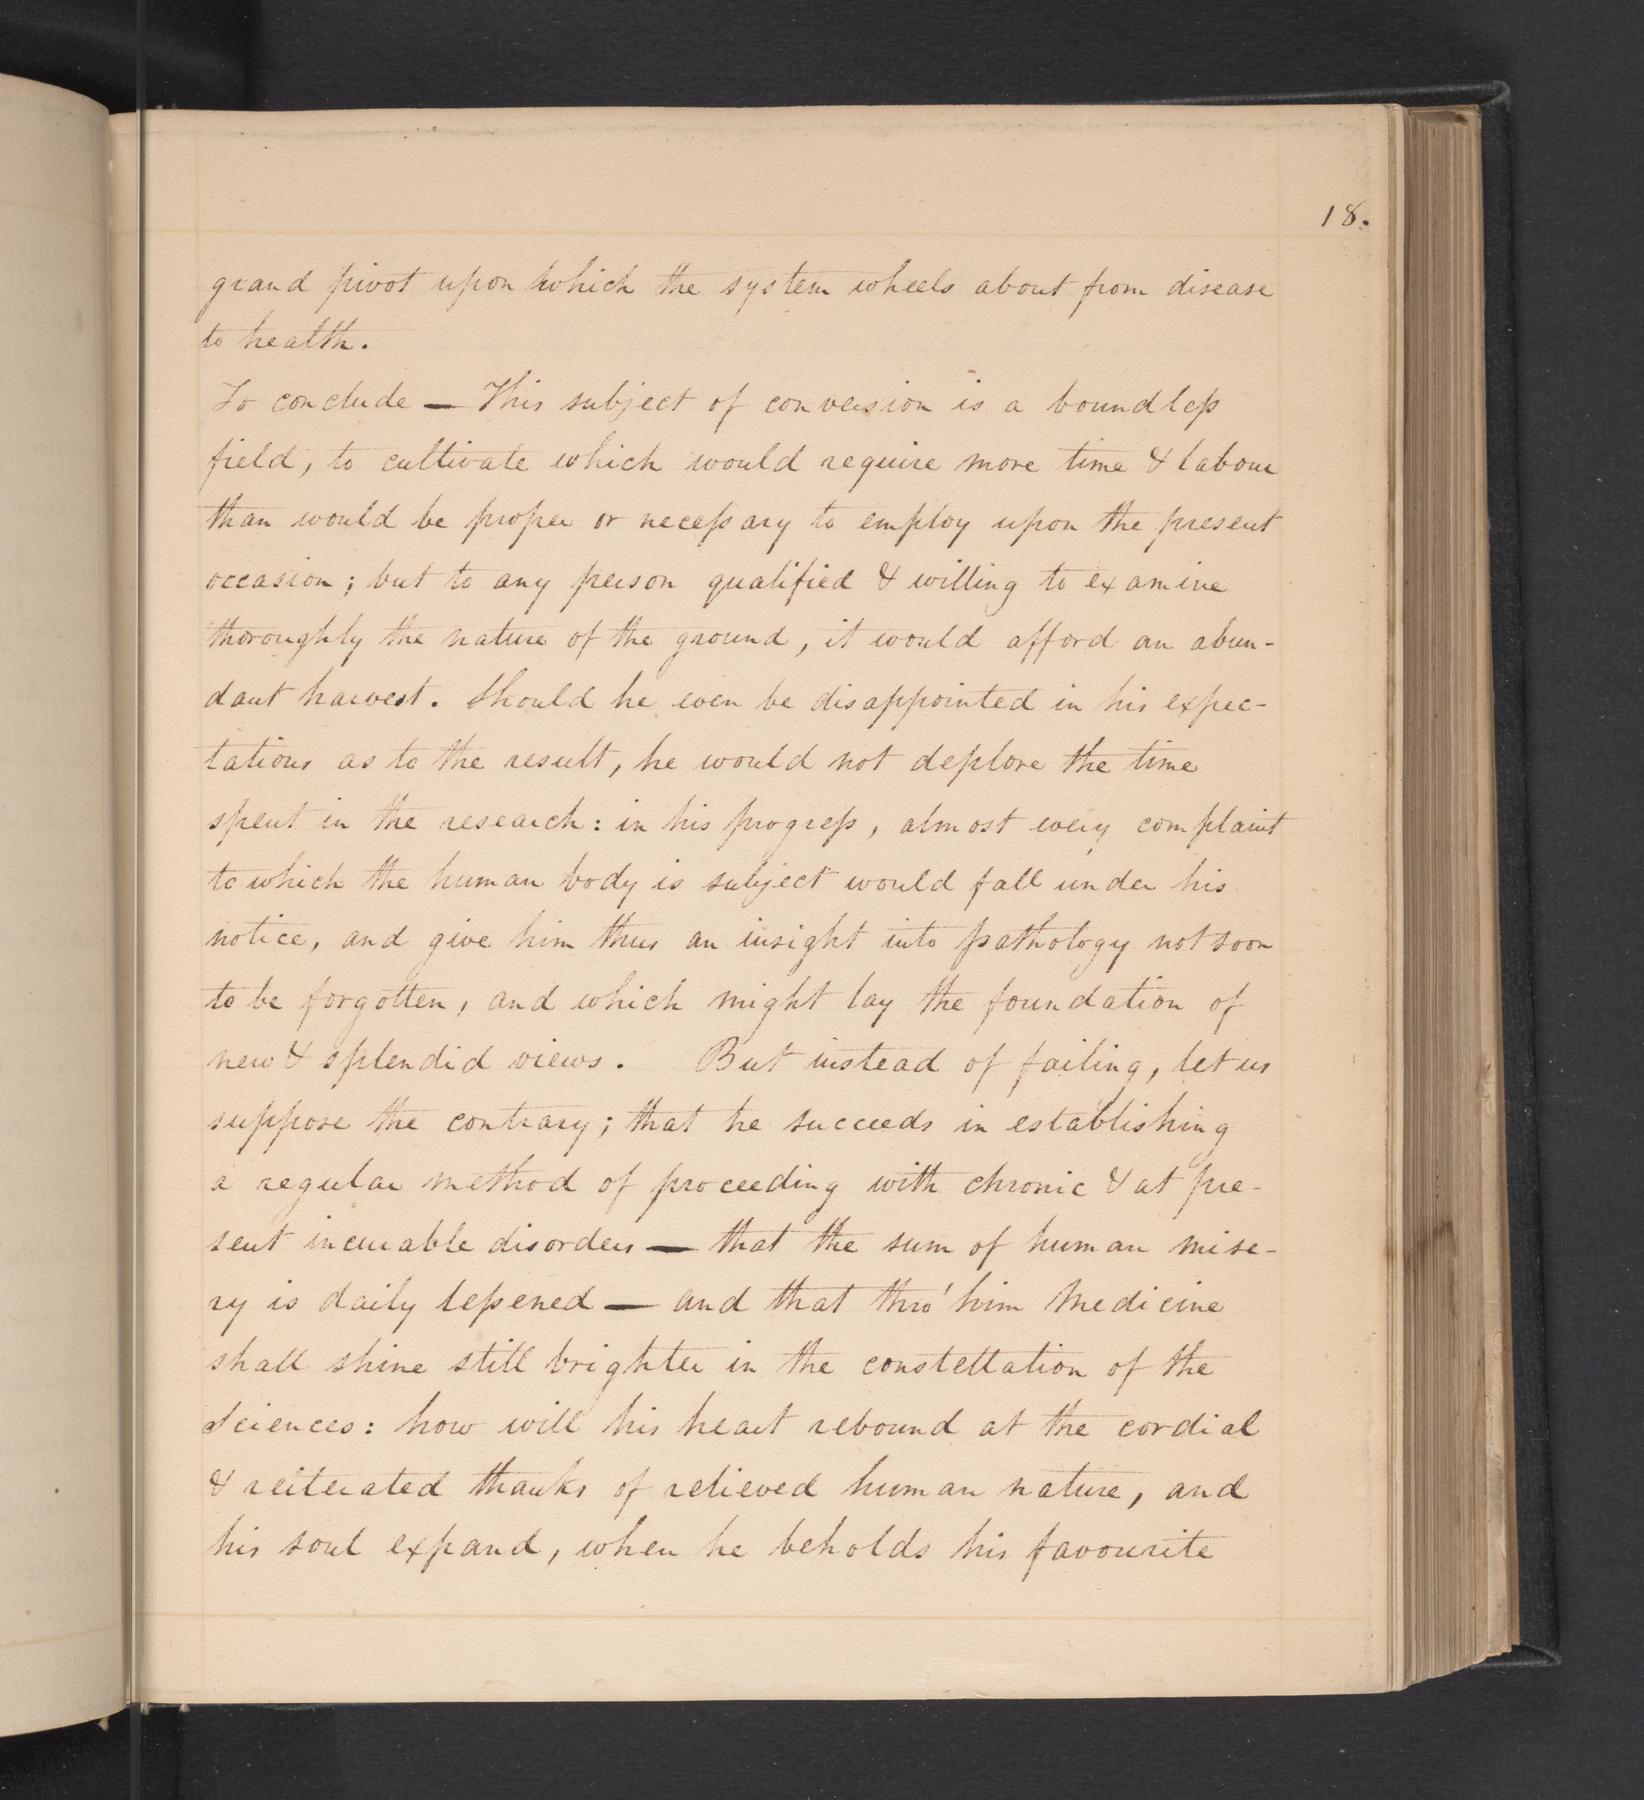 18.
grand pivot upon which the system wheels about from disease
to health.
To conclude — This subject of conversion is a boundless
field, to cultivate which would require more time & labour
than would be proper or necessary to employ upon the present
occasion; but to any person qualified & willing to examine
thoroughly the nature of the ground, it would afford an abun-
dant harvest. Should he even be disappointed in his expec-
tations as to the result, he would not deplore the time
spent in the research: in his progress, almost every complaint
to which the human body is subject would fall under his
notice, and give him thus an insight into pathology not soon
to be forgotten, and which might lay the foundation of
new & splendid views. But instead of failing, let us
suppose the contrary; that he succeeds in establishing
a regular method of proceeding with chronic & at pre-
sent incurable disorders — that the sum of human mise-
ry is daily lessened — and that thro' him Medicine
shall shine still brighter in the constellation of the
Sciences: how will his heart rebound at the cordial
& reiterated thanks of relieved human nature, and
his soul expand, when he beholds his favourite